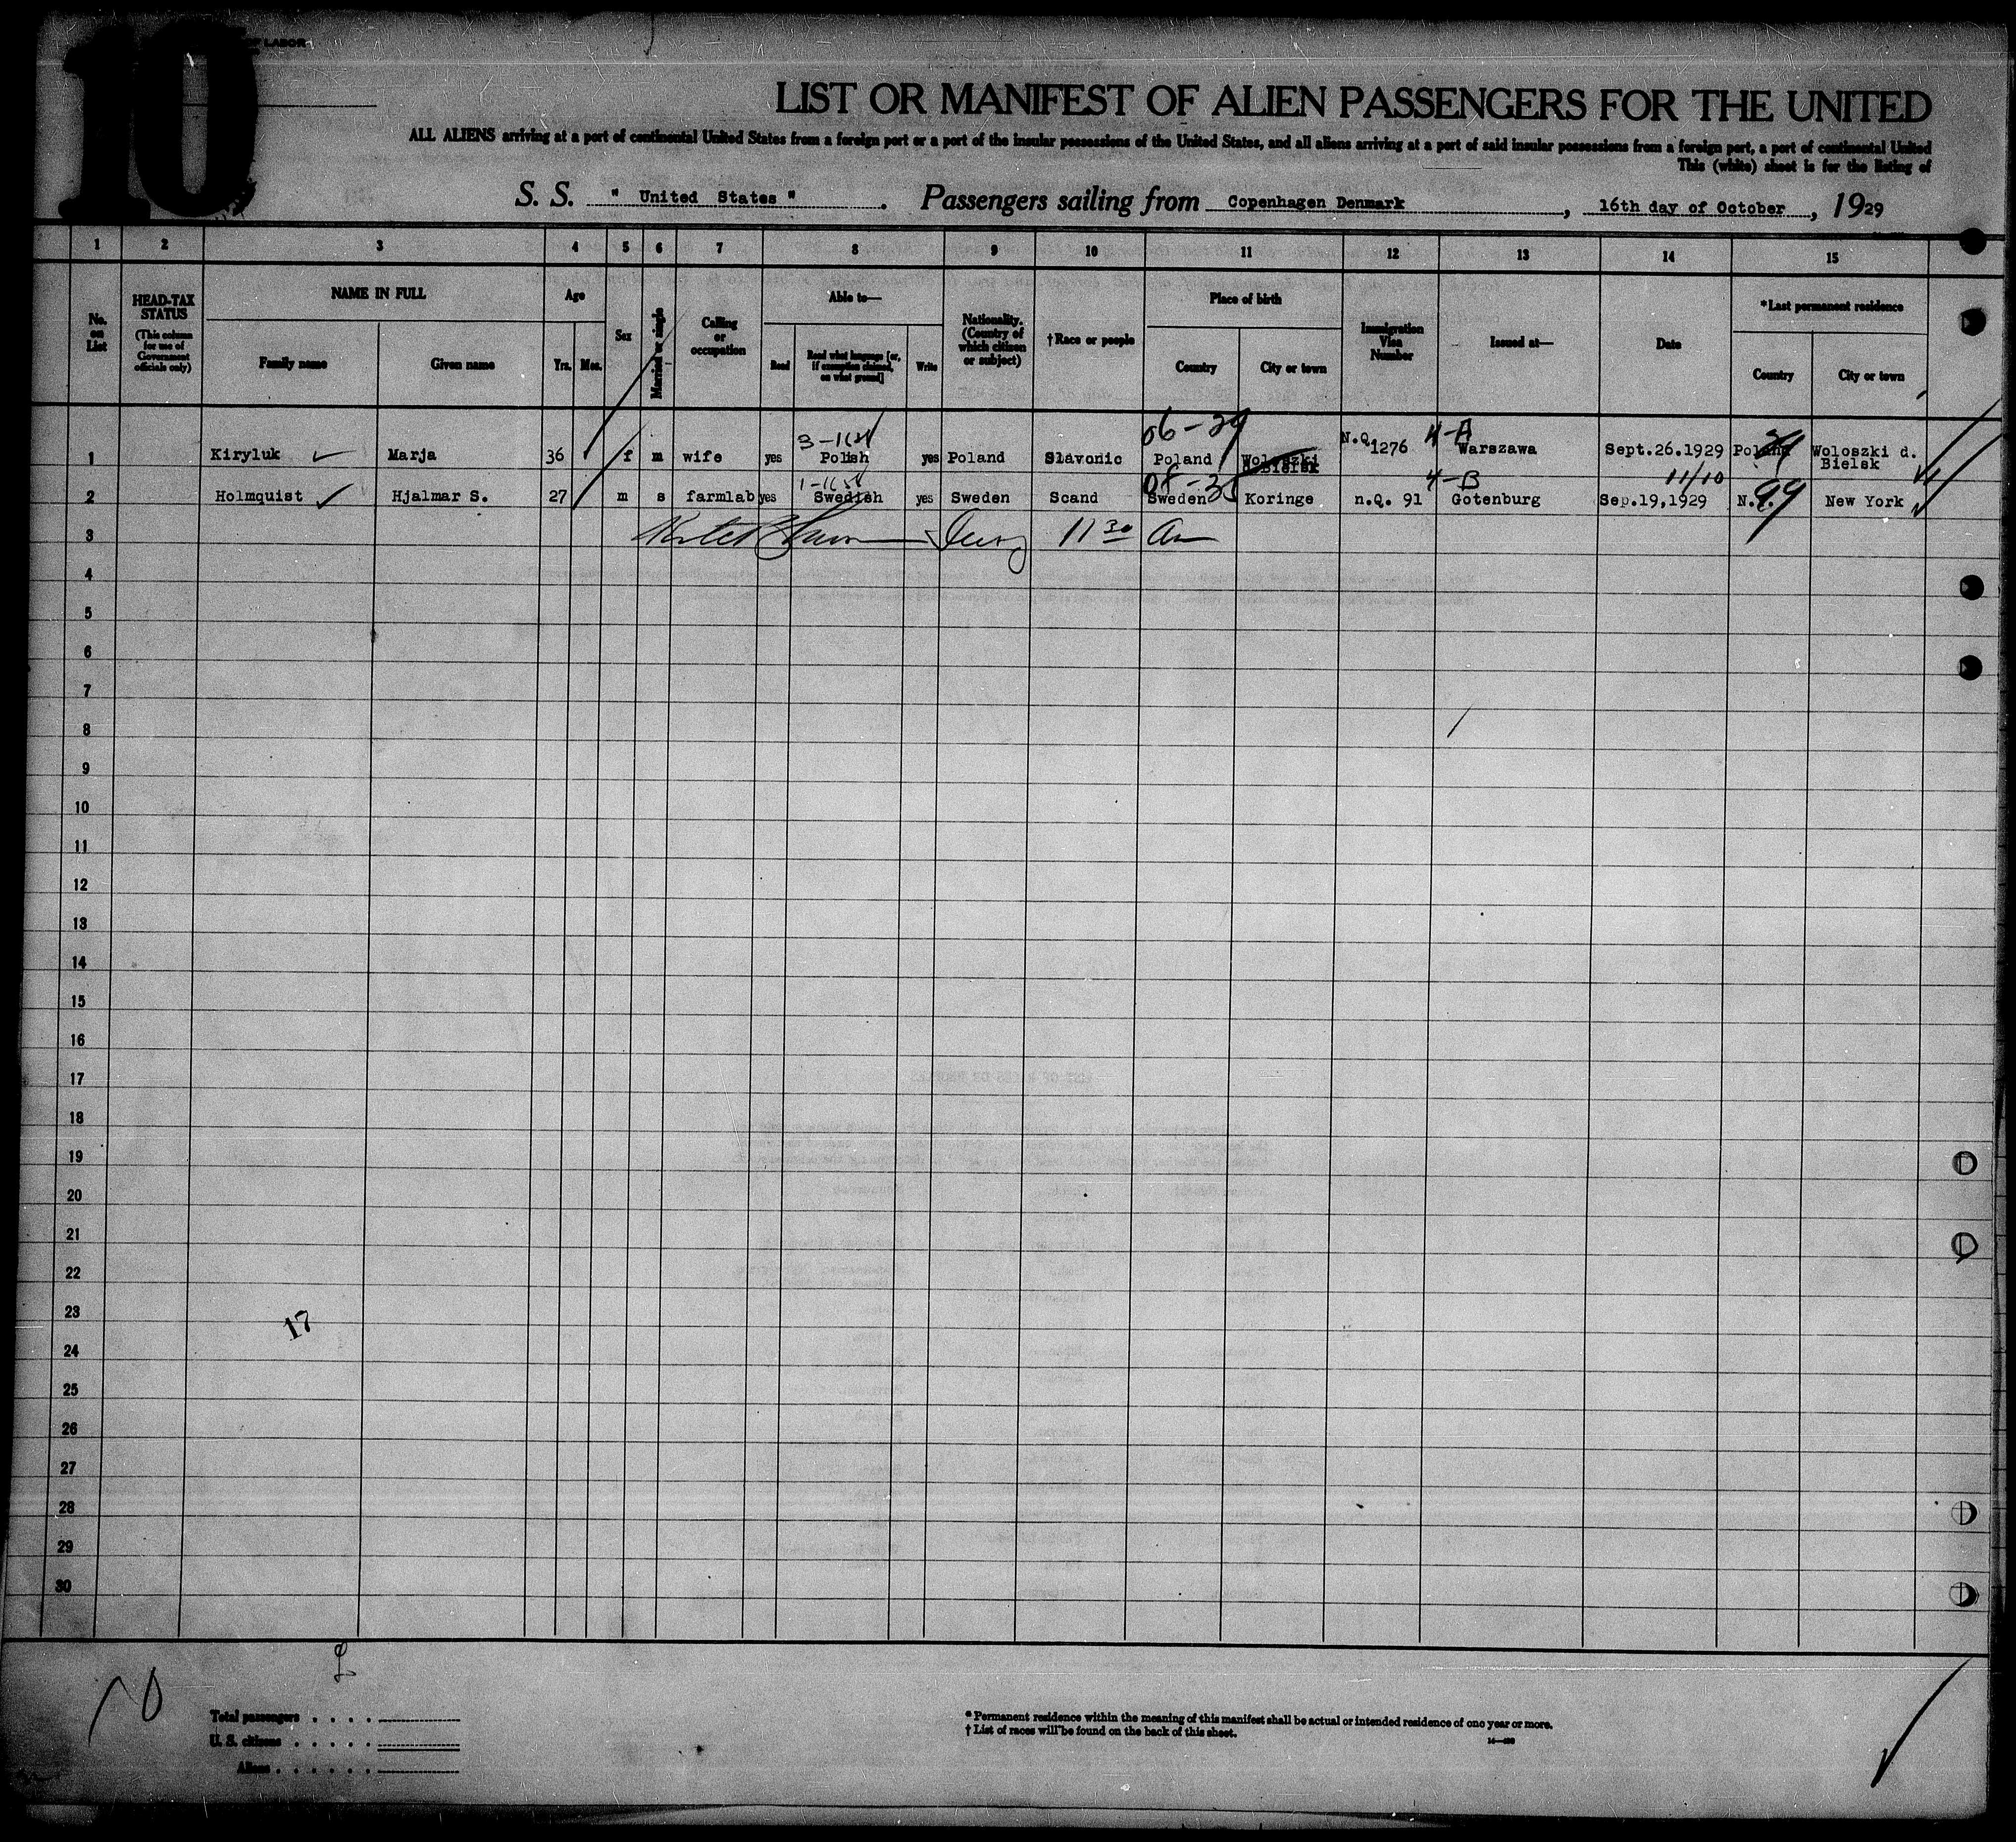 10
OF LABOR
LIST OR MANIFEST OF ALIEN PASSENGERS FOR THE UNITED
ALL ALIENS arriving at a port of continental United States from a foreign port or a port of the insular possessions of the United States, and all aliens arriving at a port of said insular possessions from a foreign port, a port of continental United
This (white) sheet is for the listing of
S. S. " United States ". Passengers sailing from Copenhagen Denmark, 16th day of October, 1929
1 2 3 4 5 6 7 8 9 10 11 12 13 14 15
No. on List
HEAD-TAX STATUS (This column for use of Government officials only)
NAME IN FULL Family name Given name
Age Yrs. Mos.
Sex
Married or single
Calling or occupation
Able to— Read Read what language [or, if exemption claimed, on what ground] Write
Nationality. (Country of which citizen or subject)
†Race or people
Place of birth Country City or town
Immigration Visa Number
Issued at—
Date
*Last permanent residence Country City or town
06-29 4-A
1 Kiryluk Marja 36 f m wife yes Polish yes Poland Slavonic Poland Woloszki Bielsk N.Q. 1276 Warszawa Sept.26.1929 Poland Woloszki d. Bielsk
08-35 4-B 11/10
2 Holmquist Hjalmar S. 27 m s farmlab yes Swedish yes Sweden Scand Sweden Koringe n.Q. 91 Gotenburg Sep.19,1929 N.Y. 99 New York
3 11 30 am
4
5
6
7
8
9
10
11
12
13
14
15
16
17
18
19
20
21
22
23
17
24
25
26
27
28
29
30
10
Total passengers
U. S. citizens
Aliens
* Permanent residence within the meaning of this manifest shall be actual or intended residence of one year or more.
† List of races will be found on the back of this sheet.